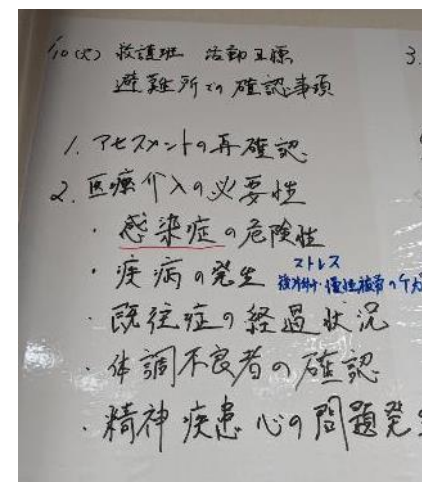 1/10(火) 救護班 活動目標
避難所での確認事項
3.
1. アセスメントの再確認
2. 医療介入の必要性
・感染症の危険性
・疾病の発生 ストレス
・既往症の経過状況
・体調不良者の確認
・精神疾患 心の問題発